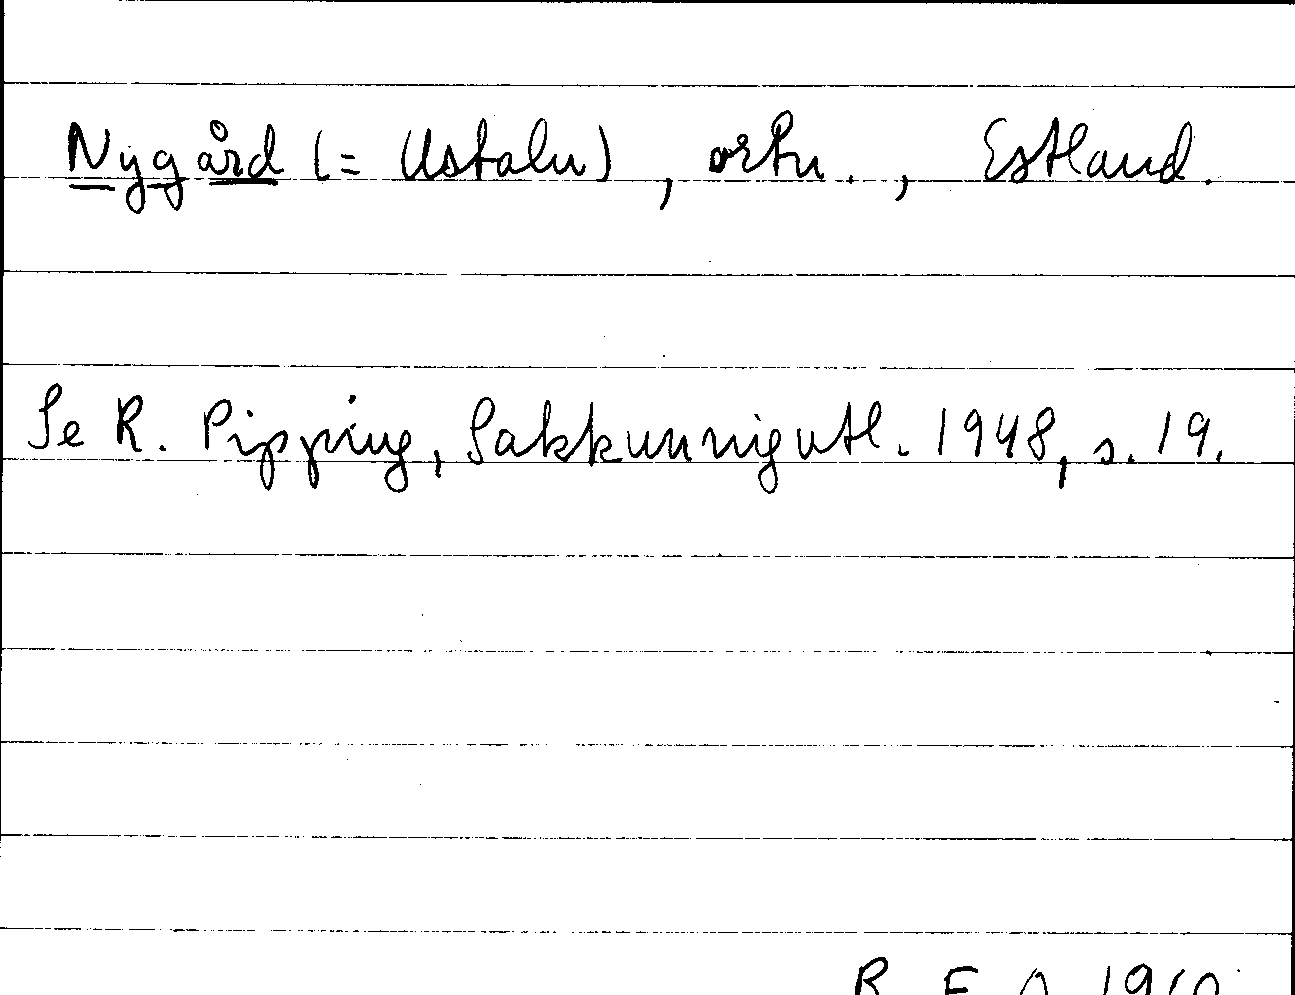 Nygård (= Ustalu), ortn., Estland.
Se R. Pipping, Sakkunnigutl. 1948, s. 19.